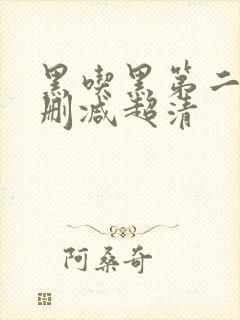 黑喫黑第二
删减超清
阿桑奇